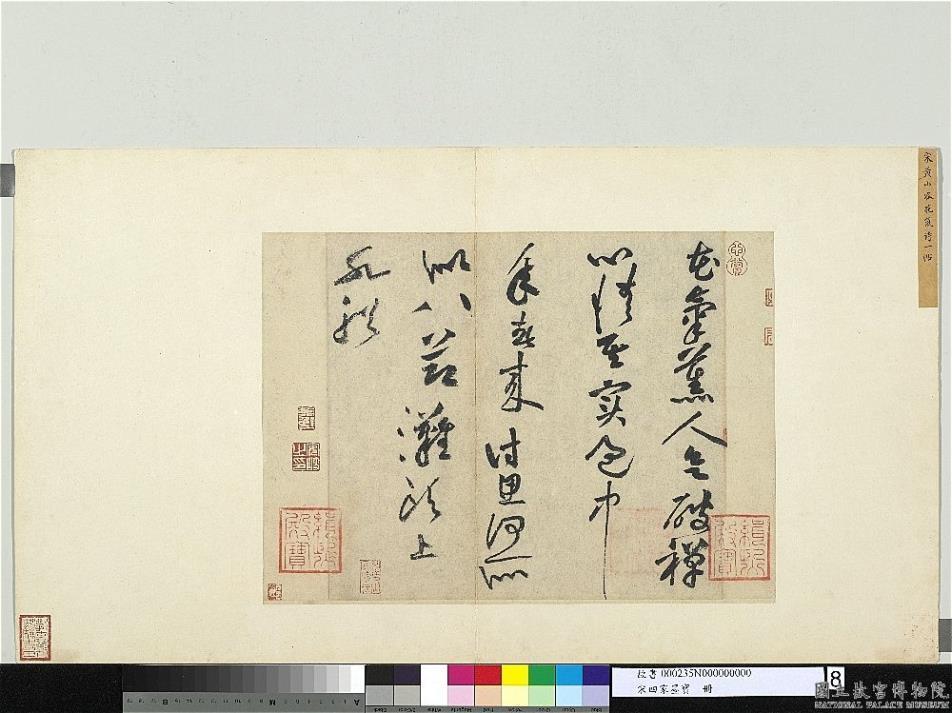 宋黃山谷花氣詩一帖
花氣薰人欲破禪
心情其實過中
年春來詩思何所
似八節灘頭上
水船
故書 000235N000000000
宋四家墨寶 冊
8
國立故宮博物院
NATIONAL PALACE MUSEUM